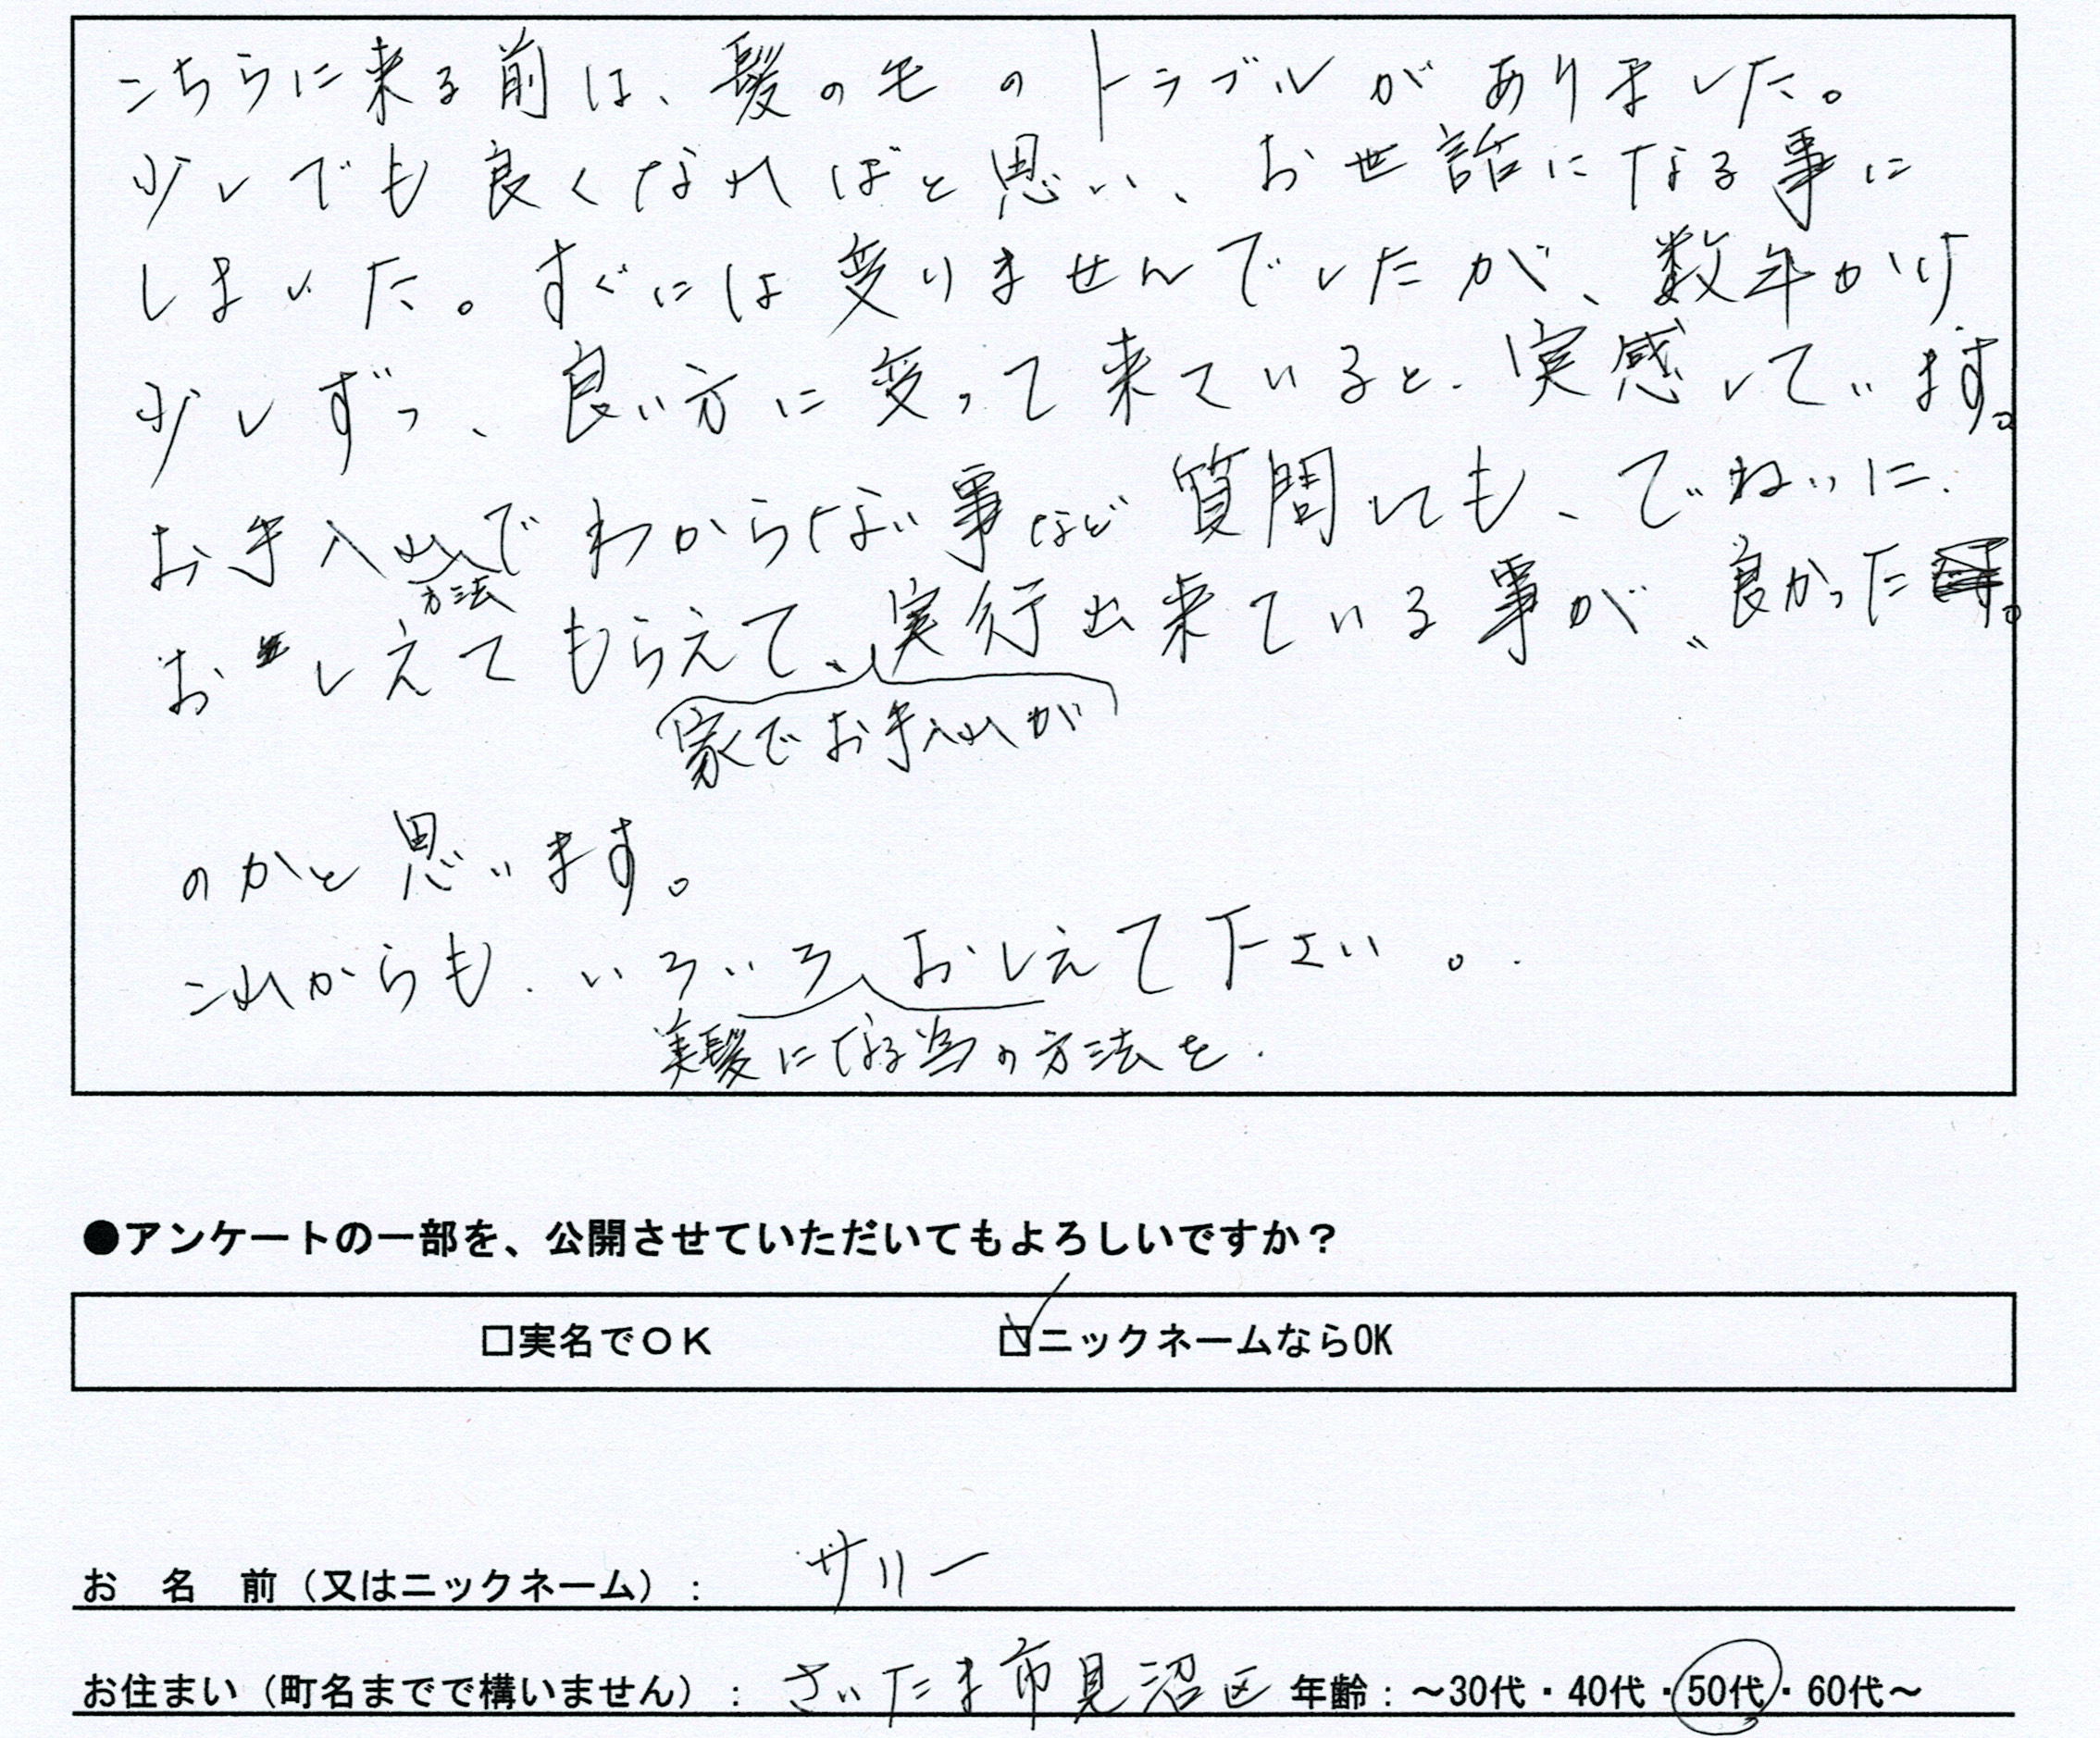 こちらに来る前は、髪の毛のトラブルがありました。
少しでも良くなればと思い、お世話になる事に
しました。すぐには変りませんでしたが、数年かけ
少しずつ、良い方に変って来ていると、実感しています。
お手入れでわからない事など質問しても、ていねいに、
方法
おしえてもらえて、実行出来ている事が、良かった
家でお手入れが
のかと思います。
これからも、いろいろおしえて下さい。
美髪になる為の方法を、
●アンケートの一部を、公開させていただいてもよろしいですか？
□実名でＯＫ ☑ニックネームならOK
お 名 前（又はニックネーム）： サリー
お住まい（町名までで構いません）： さいたま市見沼区 年齢：～30代・40代・50代・60代～